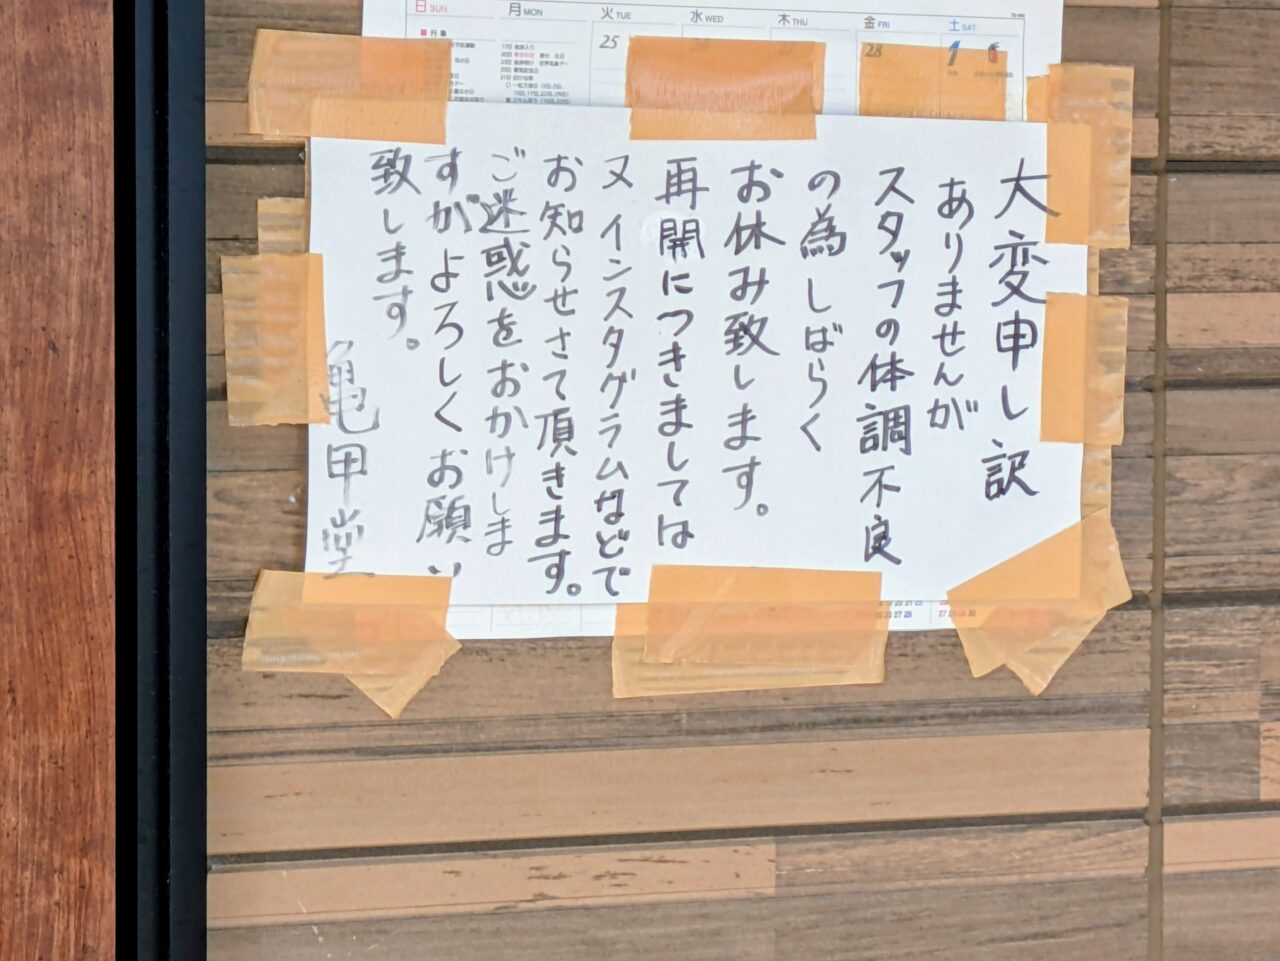 日 SUN
月 MON
火 TUE
水 WED
木 THU
金 FRI
土 SAT
25
28
1
大変申し訳
ありませんが
スタッフの体調不良
の為しばらく
お休み致します。
再開につきましては
又インスタグラムなどで
お知らせさて頂きます。
ご迷惑をおかけしま
すがよろしくお願い
致します。
亀甲堂